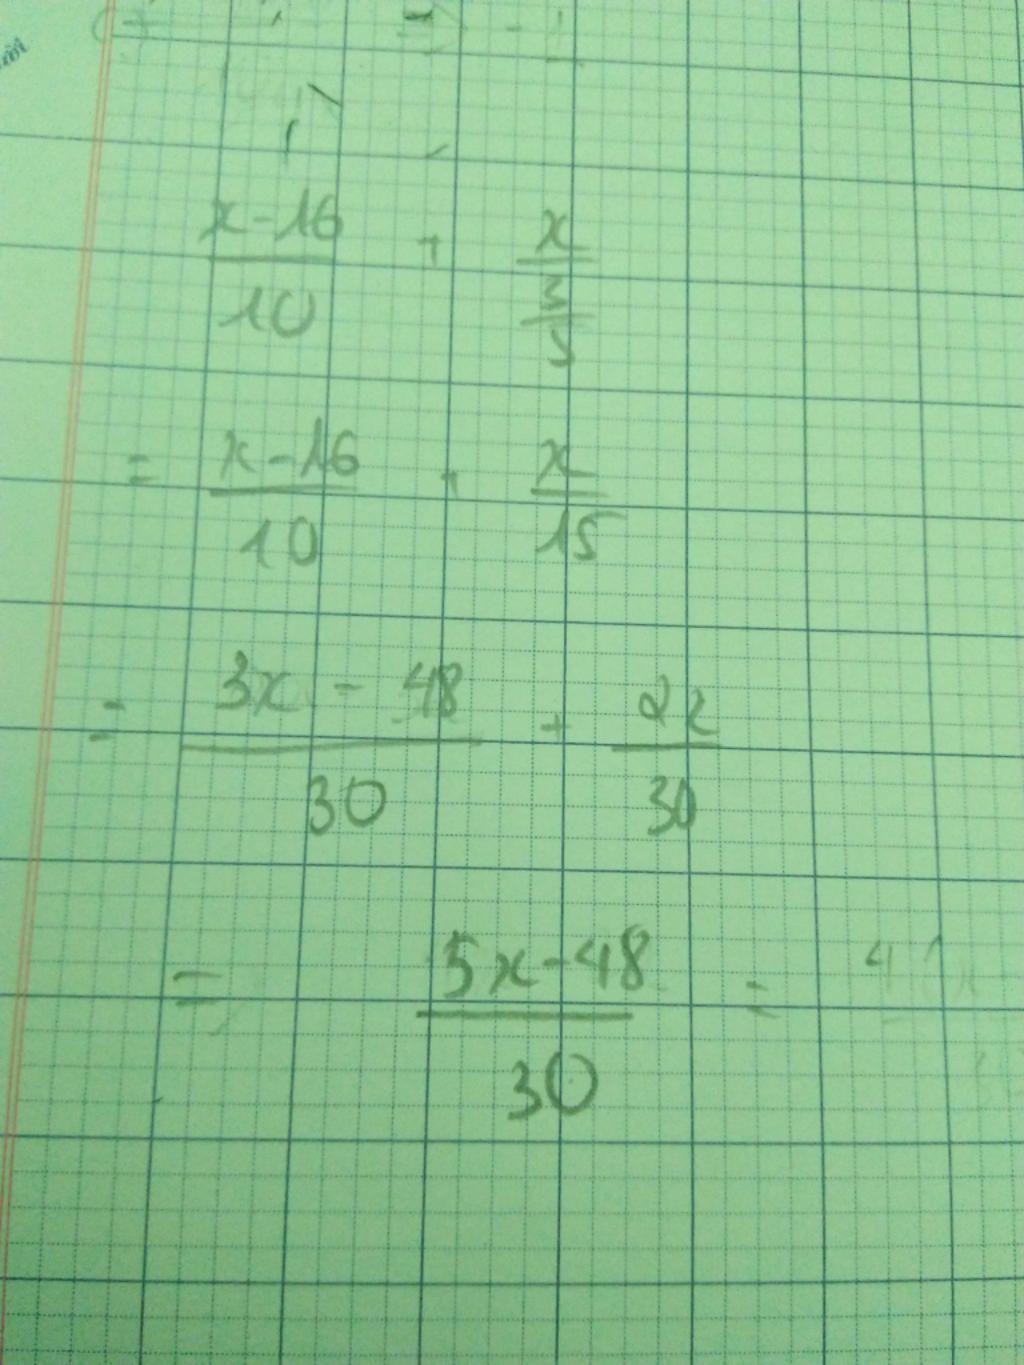 x-16/10 + x/3/5
= x-16/10 + x/15
= 3x - 48/30 + 2x/30
= 5x-48/30 =